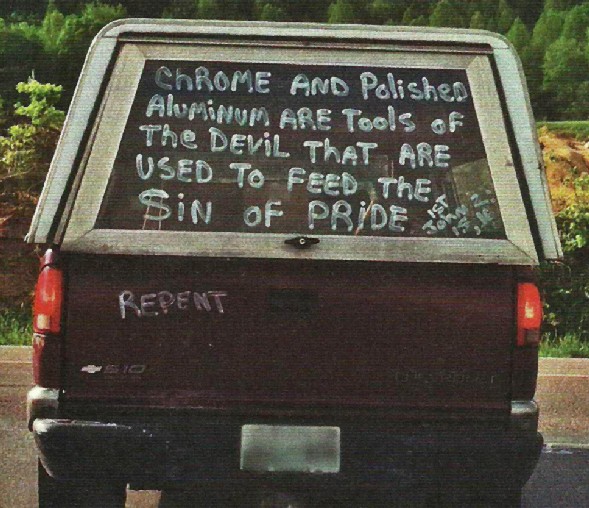 CHROME AND Polished
ALUMiNUM ARE Tools oF
The DEViL ThaT ARE
USED TO FEED The
$iN OF PRiDE
1ST
JOHN 2:
REPENT
S10